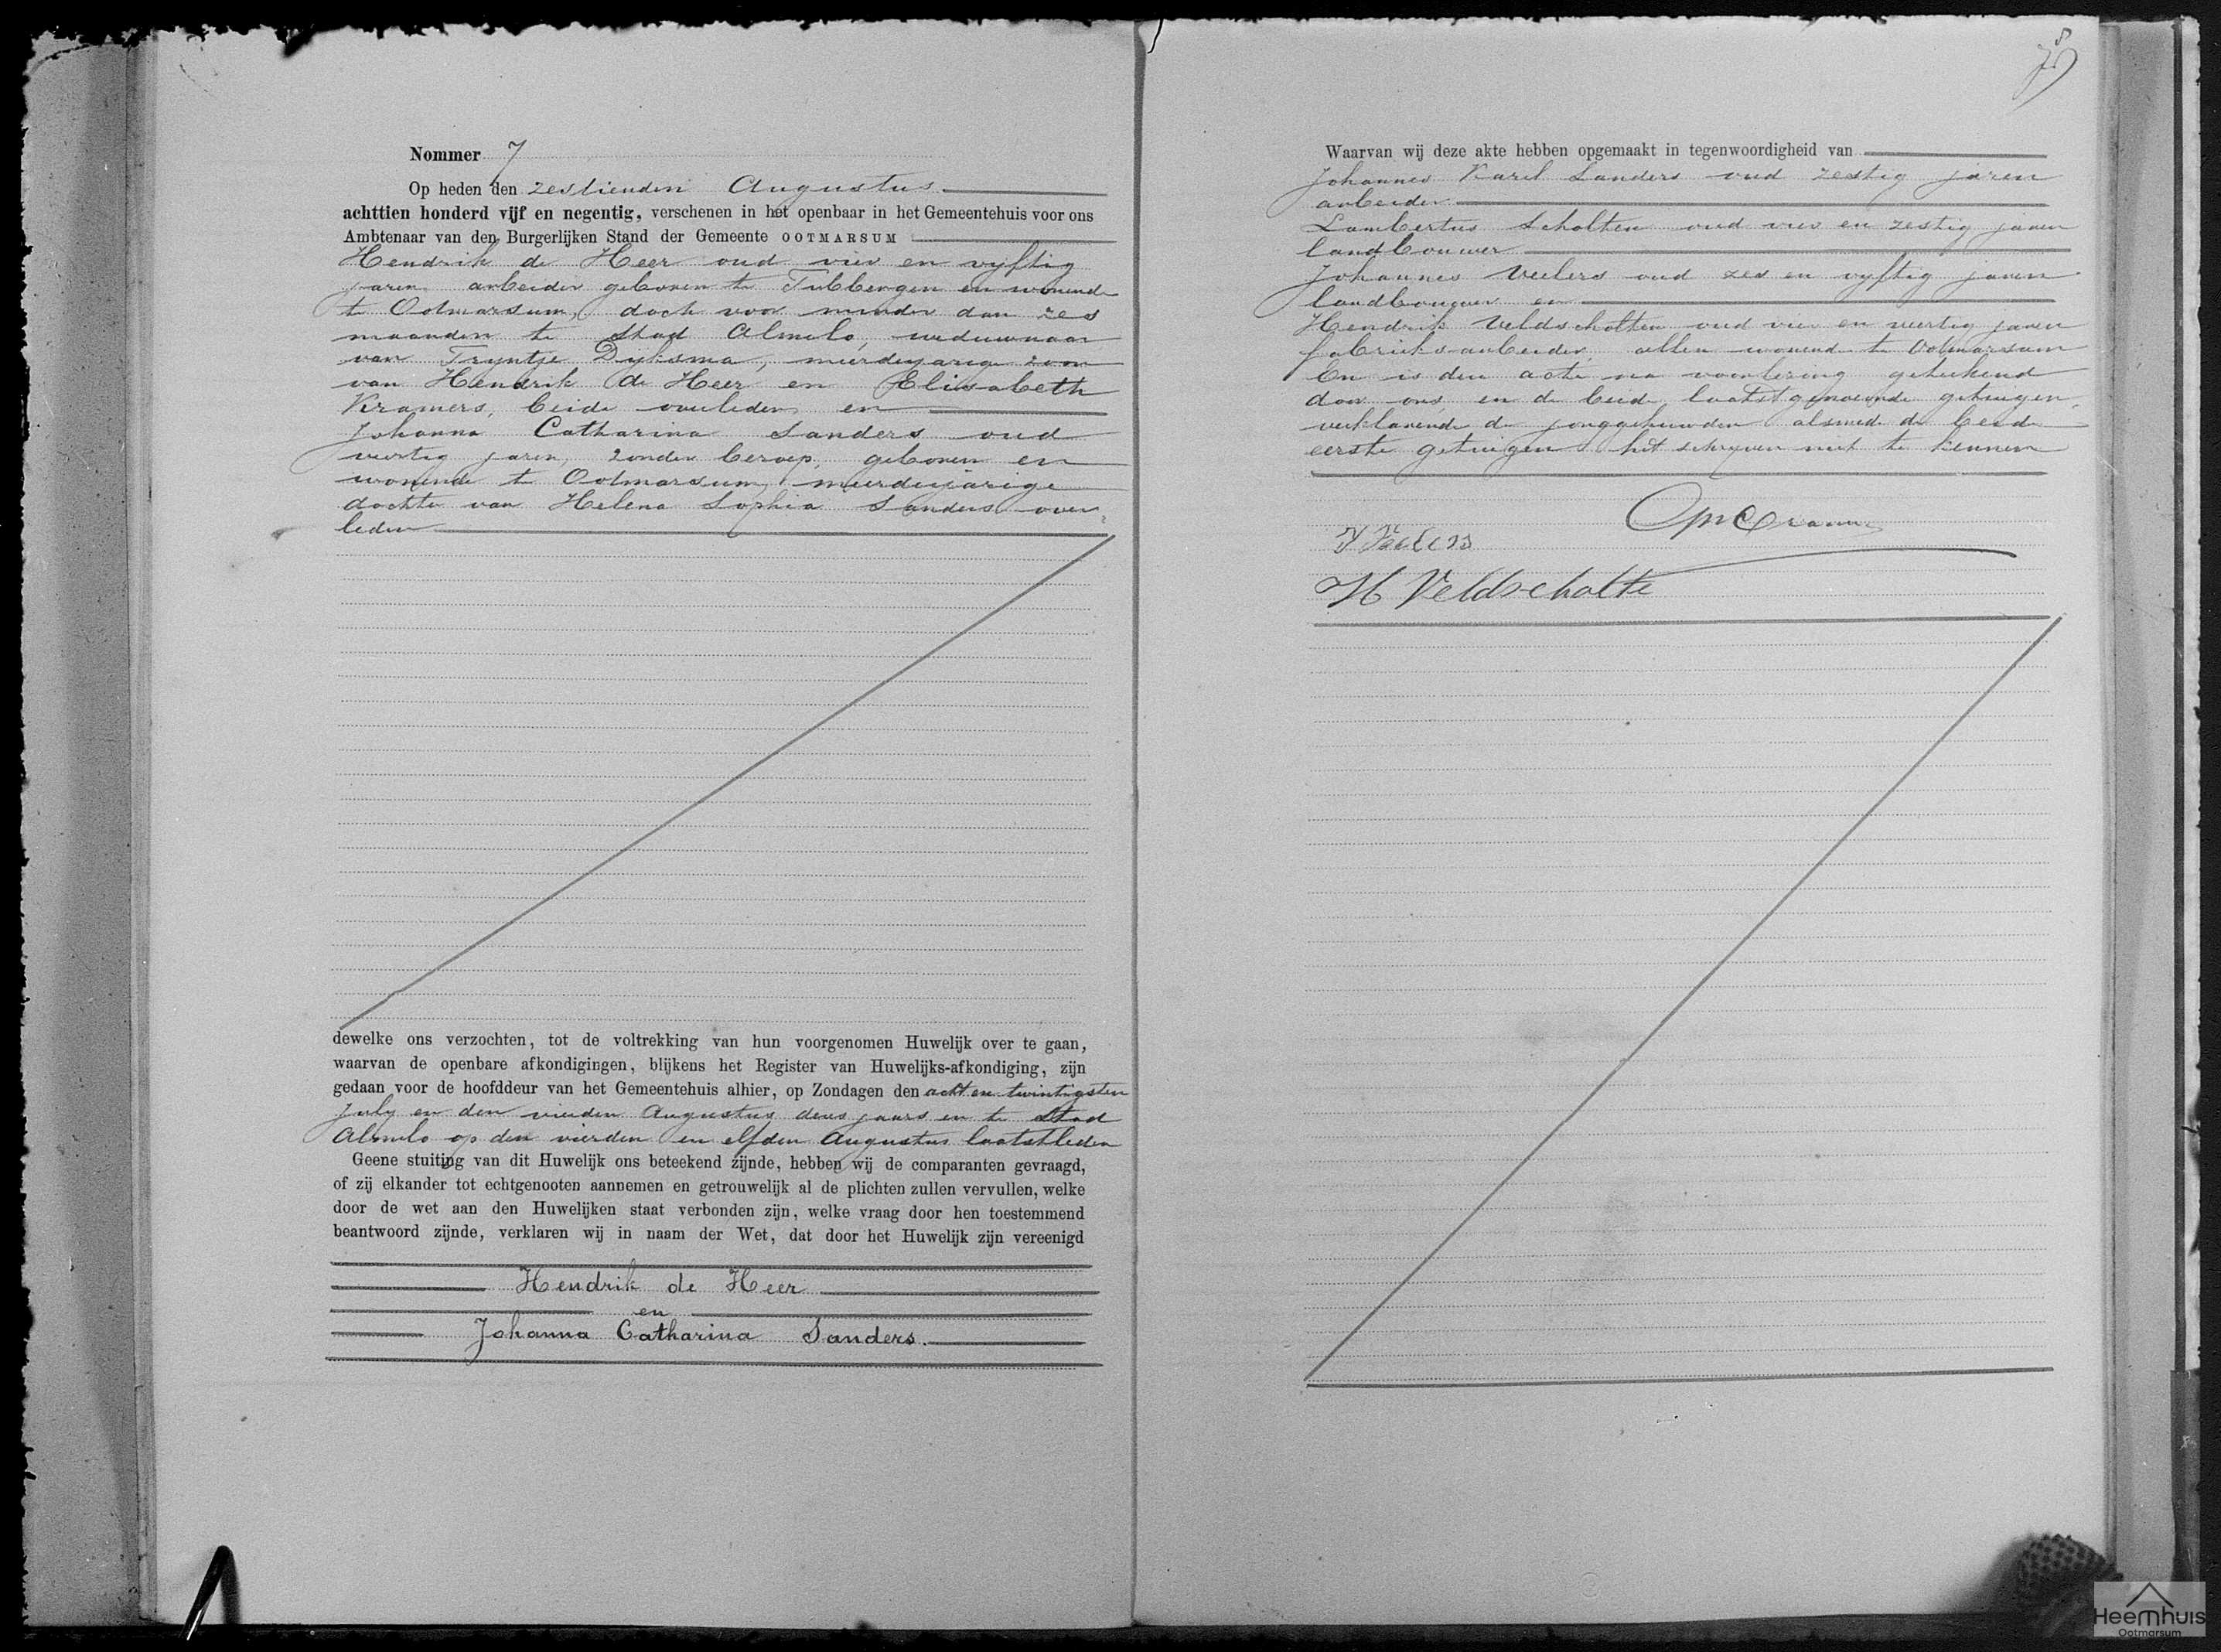 Nommer 7
Op heden den zestienden Augustus
achttien honderd vijf en negentig, verschenen in het openbaar in het Gemeentehuis voor ons
Ambtenaar van den Burgerlijken Stand der Gemeente OOTMARSUM
Hendrik de Heer oud vier en vyftig
jaren arbeider geboren te Tubbergen en wonende
te Ootmarsum, doch voor minder dan zes
maanden te Stad Almelo, weduwnaar
van Tryntje Dyksma, meerderjarige zoon
van Hendrik de Heer en Elisabeth
Kramers, beide overleden en
Johanna Catharina Sanders oud
veertig jaren, zonder beroep, geboren en
wonende te Ootmarsum, meerderjarige
dochter van Helena Sophia Sanders over
leden
dewelke ons verzochten, tot de voltrekking van hun voorgenomen Huwelijk over te gaan,
waarvan de openbare afkondigingen, blijkens het Register van Huwelijks-afkondiging, zijn
gedaan voor de hoofddeur van het Gemeentehuis alhier, op Zondagen den acht en twintigsten
July en den vierden Augustus dezes jaars en te Stad
Almelo op den vierden en elfden Augustus laatstleden
Geene stuiting van dit Huwelijk ons beteekend zijnde, hebben wij de comparanten gevraagd,
of zij elkander tot echtgenooten aannemen en getrouwelijk al de plichten zullen vervullen, welke
door de wet aan den Huwelijken staat verbonden zijn, welke vraag door hen toestemmend
beantwoord zijnde, verklaren wij in naam der Wet, dat door het Huwelijk zijn vereenigd
Hendrik de Heer
en
Johanna Catharina Sanders.
Waarvan wij deze akte hebben opgemaakt in tegenwoordigheid van
Johannes Karel Sanders oud zestig jaren
arbeider
Lambertus Scholten oud vier en zestig jaren
landbouwer
Johannes Veelers oud zes en vyftig jaren
landbouwer en
Hendrik Veldscholten oud vier en veertig jaren
fabrieks-arbeider, allen wonende te Ootmarsum
En is deze acte na voorlezing geteekend
door ons, en de beide laatstgenoemde getuigen,
verklarende de jonggehuwden alsmede de beide
eerste getuigen het schryven niet te kennen
J Veelers
H Veldscholte
Heemhuis
Ootmarsum